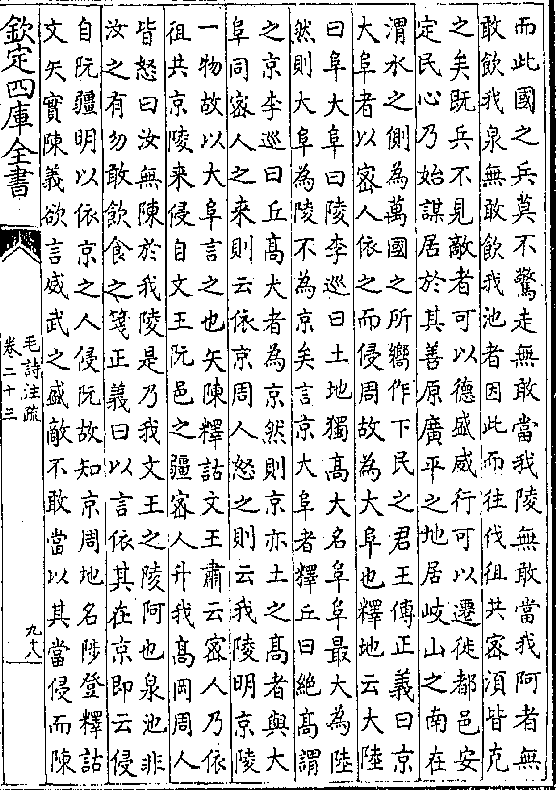 而此國之兵莫不驚走無敢當我陵無敢當我阿者無
敢飲我泉無敢飲我池者因此而往伐徂共密湏皆克
之矣既兵不見敵者可以德盛威行可以遷徙都邑安
定民心乃始謀居於其善原廣平之地居岐山之南在
渭水之側為萬國之所嚮作下民之君王傳正義曰京
大阜者以密人依之而侵周故為大阜也釋地云大陸
曰阜大阜曰陵李巡曰土地獨髙大名阜阜最大為陸
然則大阜為陵不為京矣言京大阜者釋丘曰絶髙謂
之京李巡曰丘髙大者為京然則京亦土之髙者與大
阜同密人之来則云依京周人怒之則云我陵明京陵
一物故以大阜言之也矢陳釋詁文王肅云密人乃依
徂共京陵来侵自文王阮邑之疆密人升我髙岡周人
皆怒曰汝無陳於我陵是乃我文王之陵阿也泉池非
汝之有勿敢飲食之箋正義曰以言依其在京即云侵
自阮疆明以依京之人侵阮故知京周地名陟登釋詁
文矢實陳義欲言威武之盛敵不敢當以其當侵而陳
欽定四庫全書
毛詩注疏
卷二十三
九十八